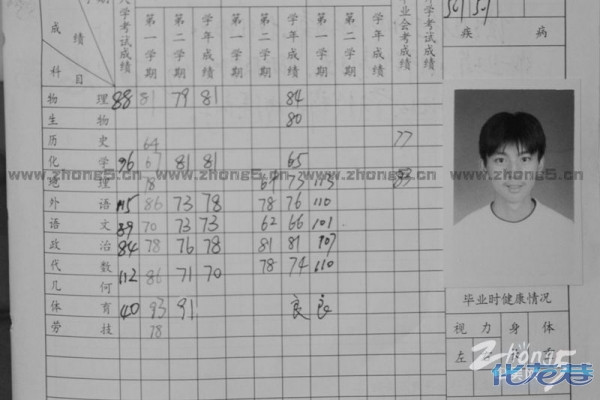 成绩 科目 入学考试成绩 第一学期 第二学期 学年成绩 第一学期 第二学期 学年成绩 第一学期 第二学期 毕业会考成绩 升学考试成绩 疾病
物理 88 81 79 81 84
生物 80
历史 64 77
化学 96 67 81 81 65
www.zhong5.cn www.zhong5.cn www.zhong5.cn
地理 78 64 73 113 83
外语 115 86 73 78 78 76 110
语文 89 70 73 73 62 66 101
政治 84 78 76 78 81 81 107
代数 112 86 71 70 78 74 110
几何
体育 40 93 91 良 良
劳技 78
毕业时健康情况
视力 身体
左
zhong5
化龙巷